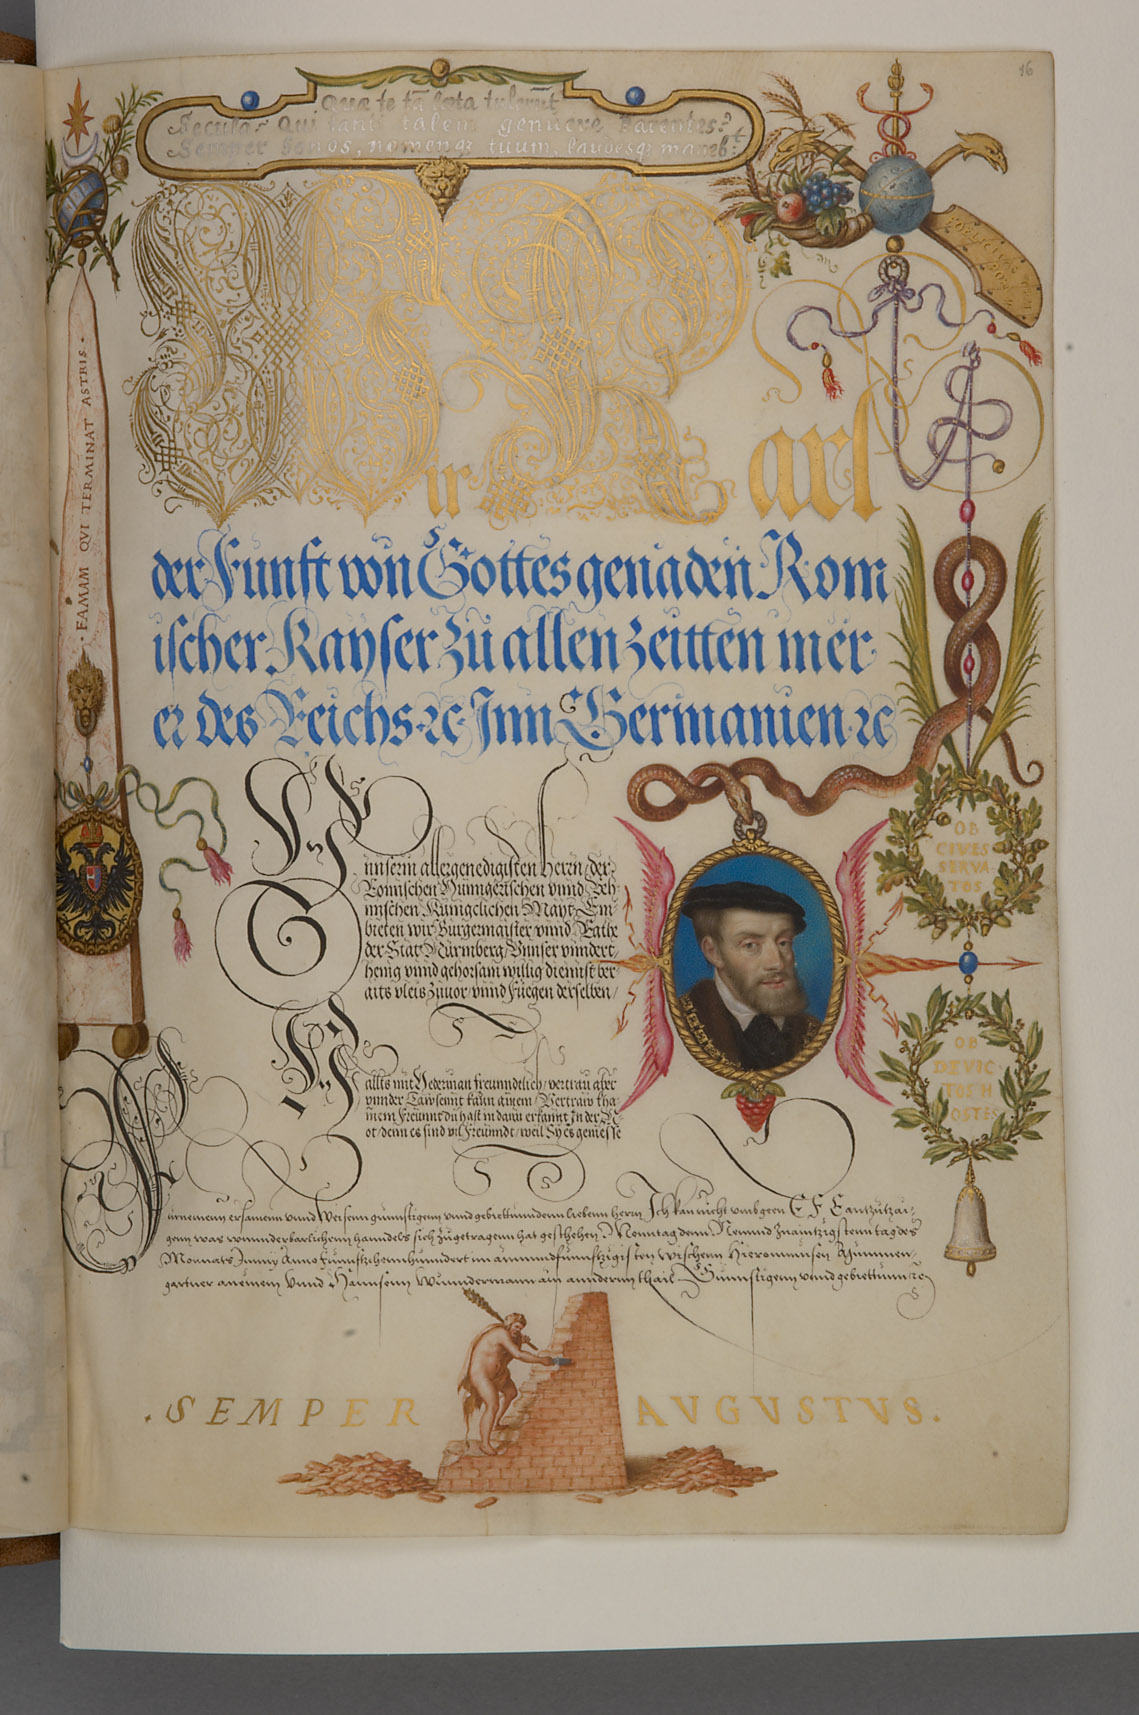 16
Quæ te tā læta tulerūt
Secula? Qui tanti talem genuere Parentes?
Semper honos, nomenq; tuum, laudesq; maneb:t
·FAMAM QVI TERMINAT ASTRIS·
Wir Karl
der Funft von Gottes genaden Rom
ischer Kayser zu allen zeitten mer
er des Reichs ⁊c Inn Germanien ⁊c
unserm allergenedigsten herrn der
Romischen Hunngerischen vnnd Beh
mischen Kunigclichen Mayt Em
bieten wir Burgermaister vnnd Rathe
der Stat Nürmberg Vnnser vnndert
henig vnnd gehorsam willig diennst ber
aits vleis zuuor vnnd Fuegen derselben
allts mit Yederman freunndtlich vertrau aber
vnnder Tawsennt kaum ainem Vertraw kha
inem Freunnt du hast in dann erkannt In der N
ot denn es sind vil Freunndt weil Sy es geniesse
OB
CIVES
SERVA
TOS
OB
DEVIC
TOS H
OSTES
urnemenn ersamenn vnnd Weisenn gunnstigenn vnnd gebiettunndenn liebenn herrn Ich kan nicht vmbgeen E F E antzutzai:
genn was wunnderbarlichenn hanndels sich zugetragenn hat geschehenn Monntag denn Neunnd Zwaintzigstenn tag des
Monnats Junny Anno funnftzehennhunndert im ain vnnd funnftzigisten zwischenn Hieronimusen Khummen:
gartner an einem Vnnd Hannsenn Wunndermann am annderm thail Gunnstigenn vnnd gebiettunn ⁊c
·SEMPER AVGVSTVS.